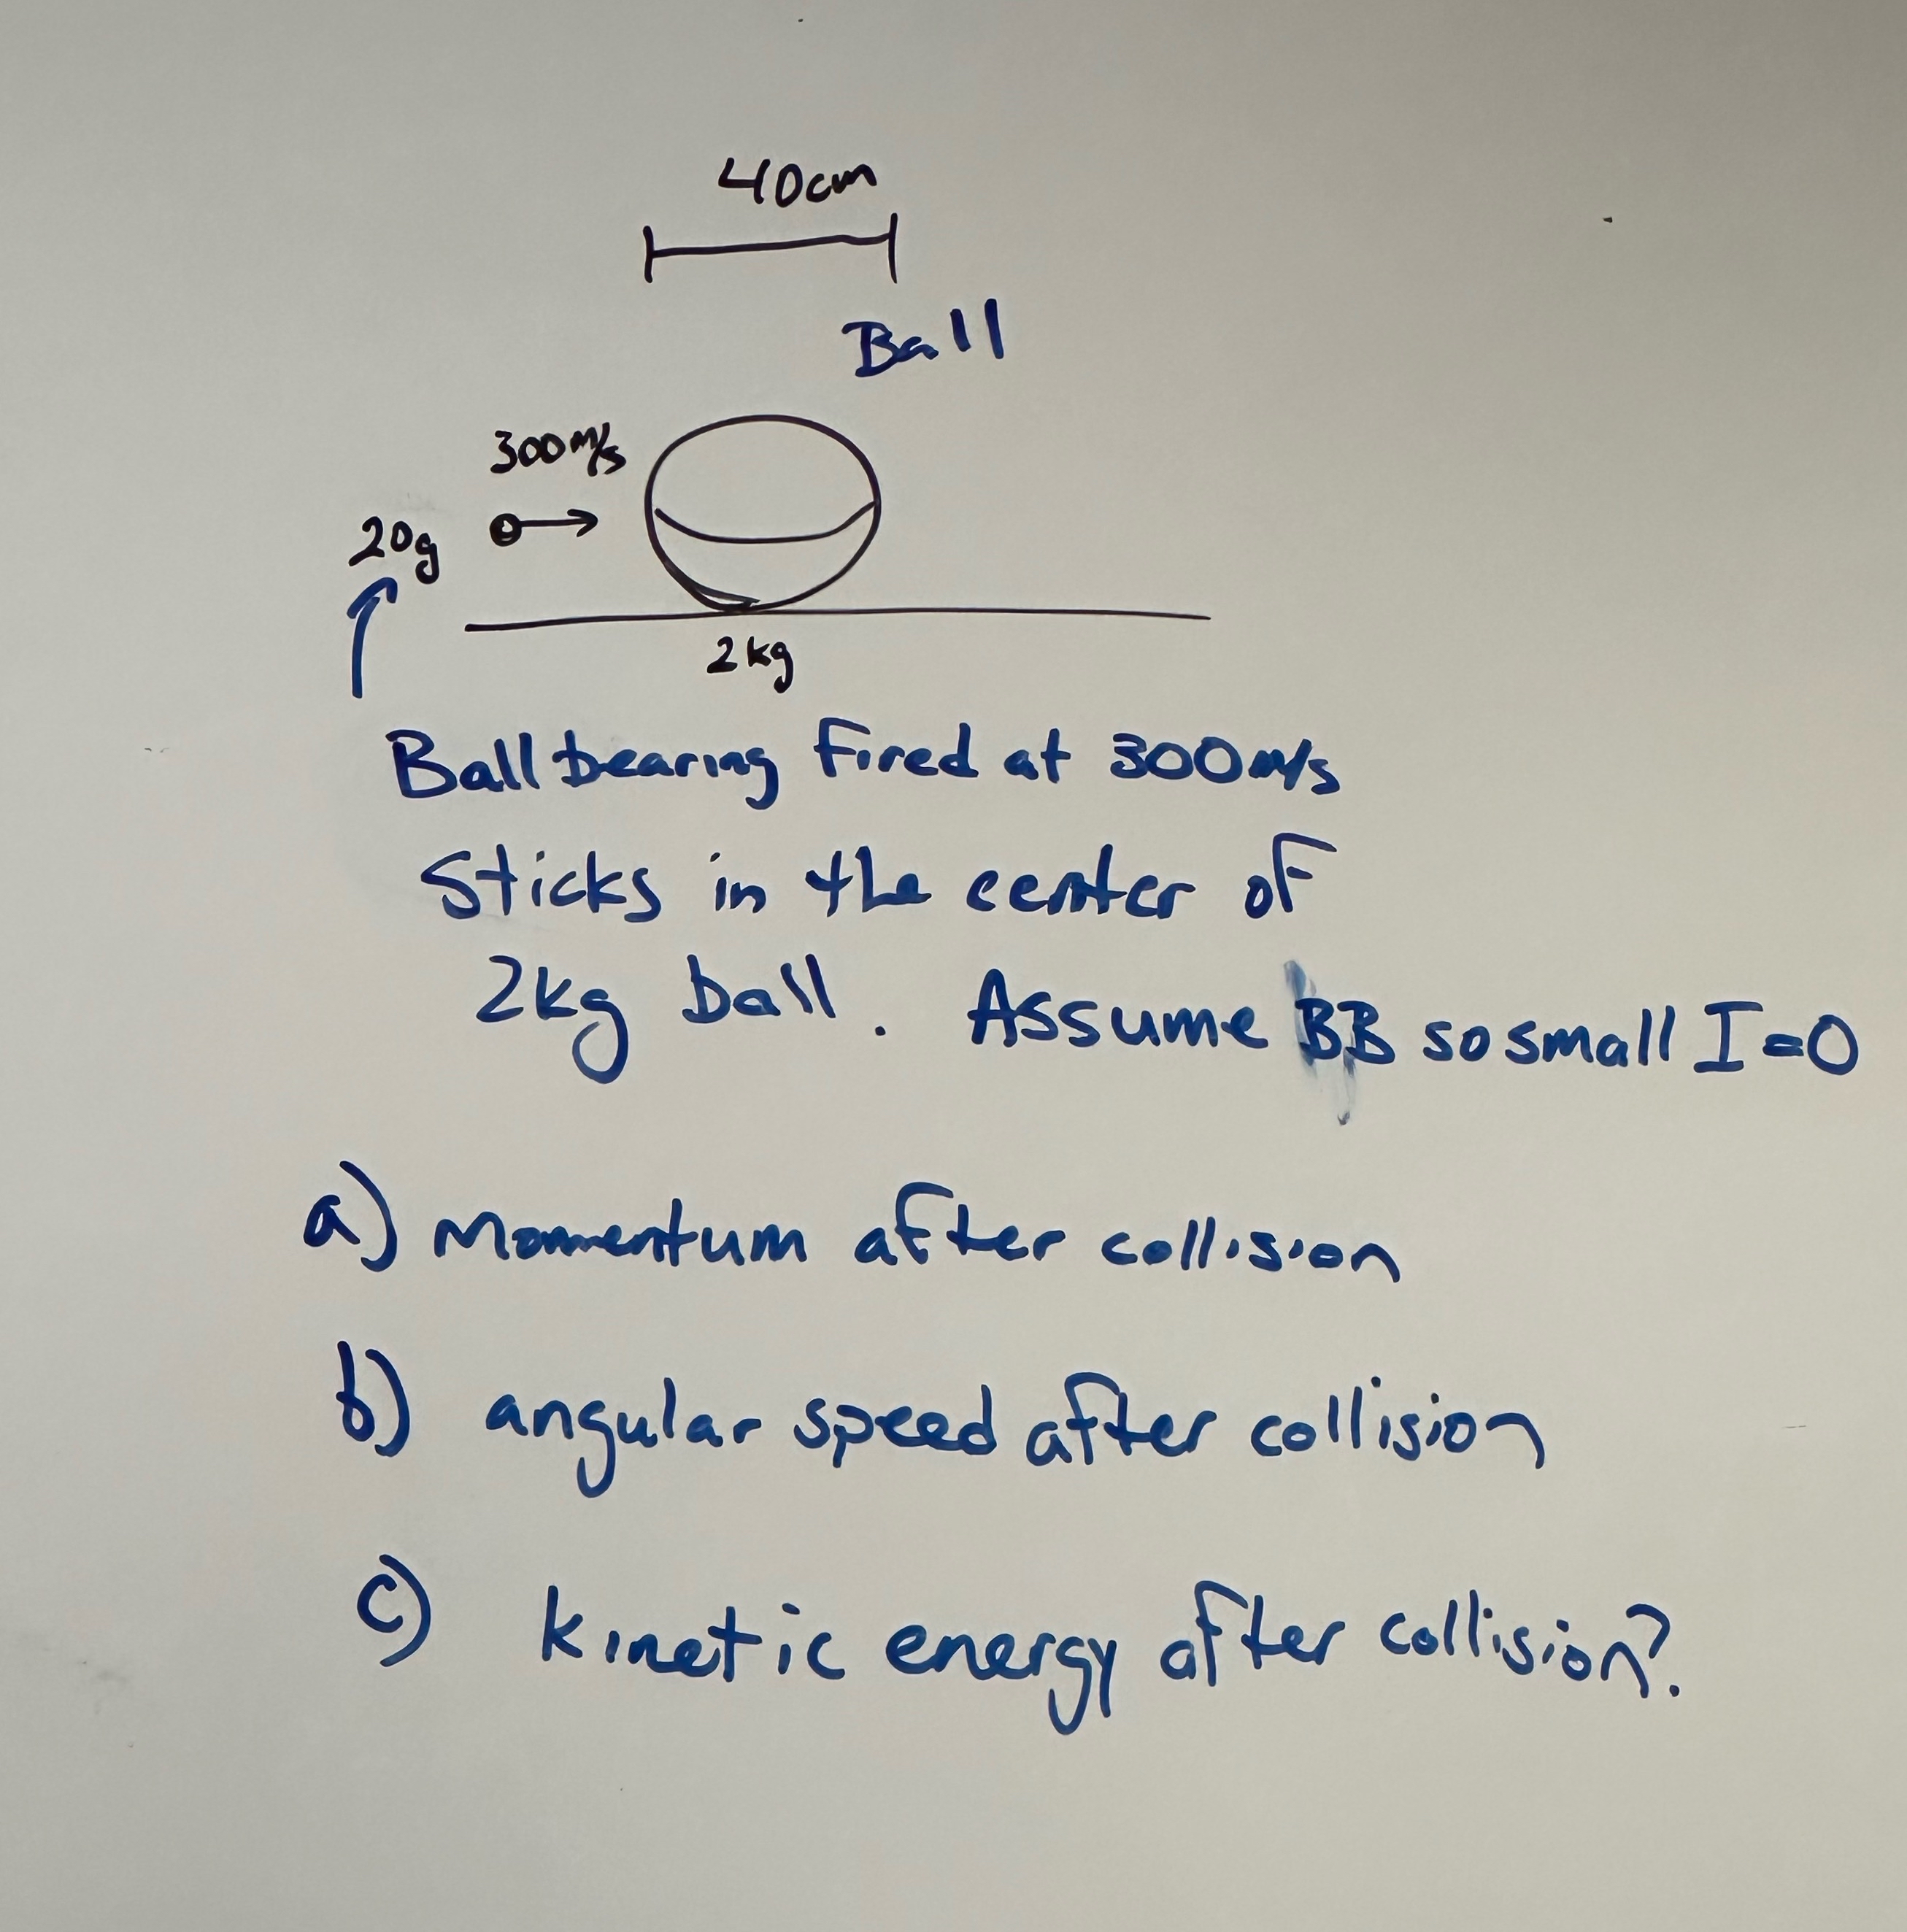 40cm
Ball
300m/s
20g
2kg
Ball bearing fired at 300m/s
Sticks in the center of
2kg ball. Assume BB so small I=0
a) Momentum after collision
b) angular speed after collision
c) kinetic energy after collision?